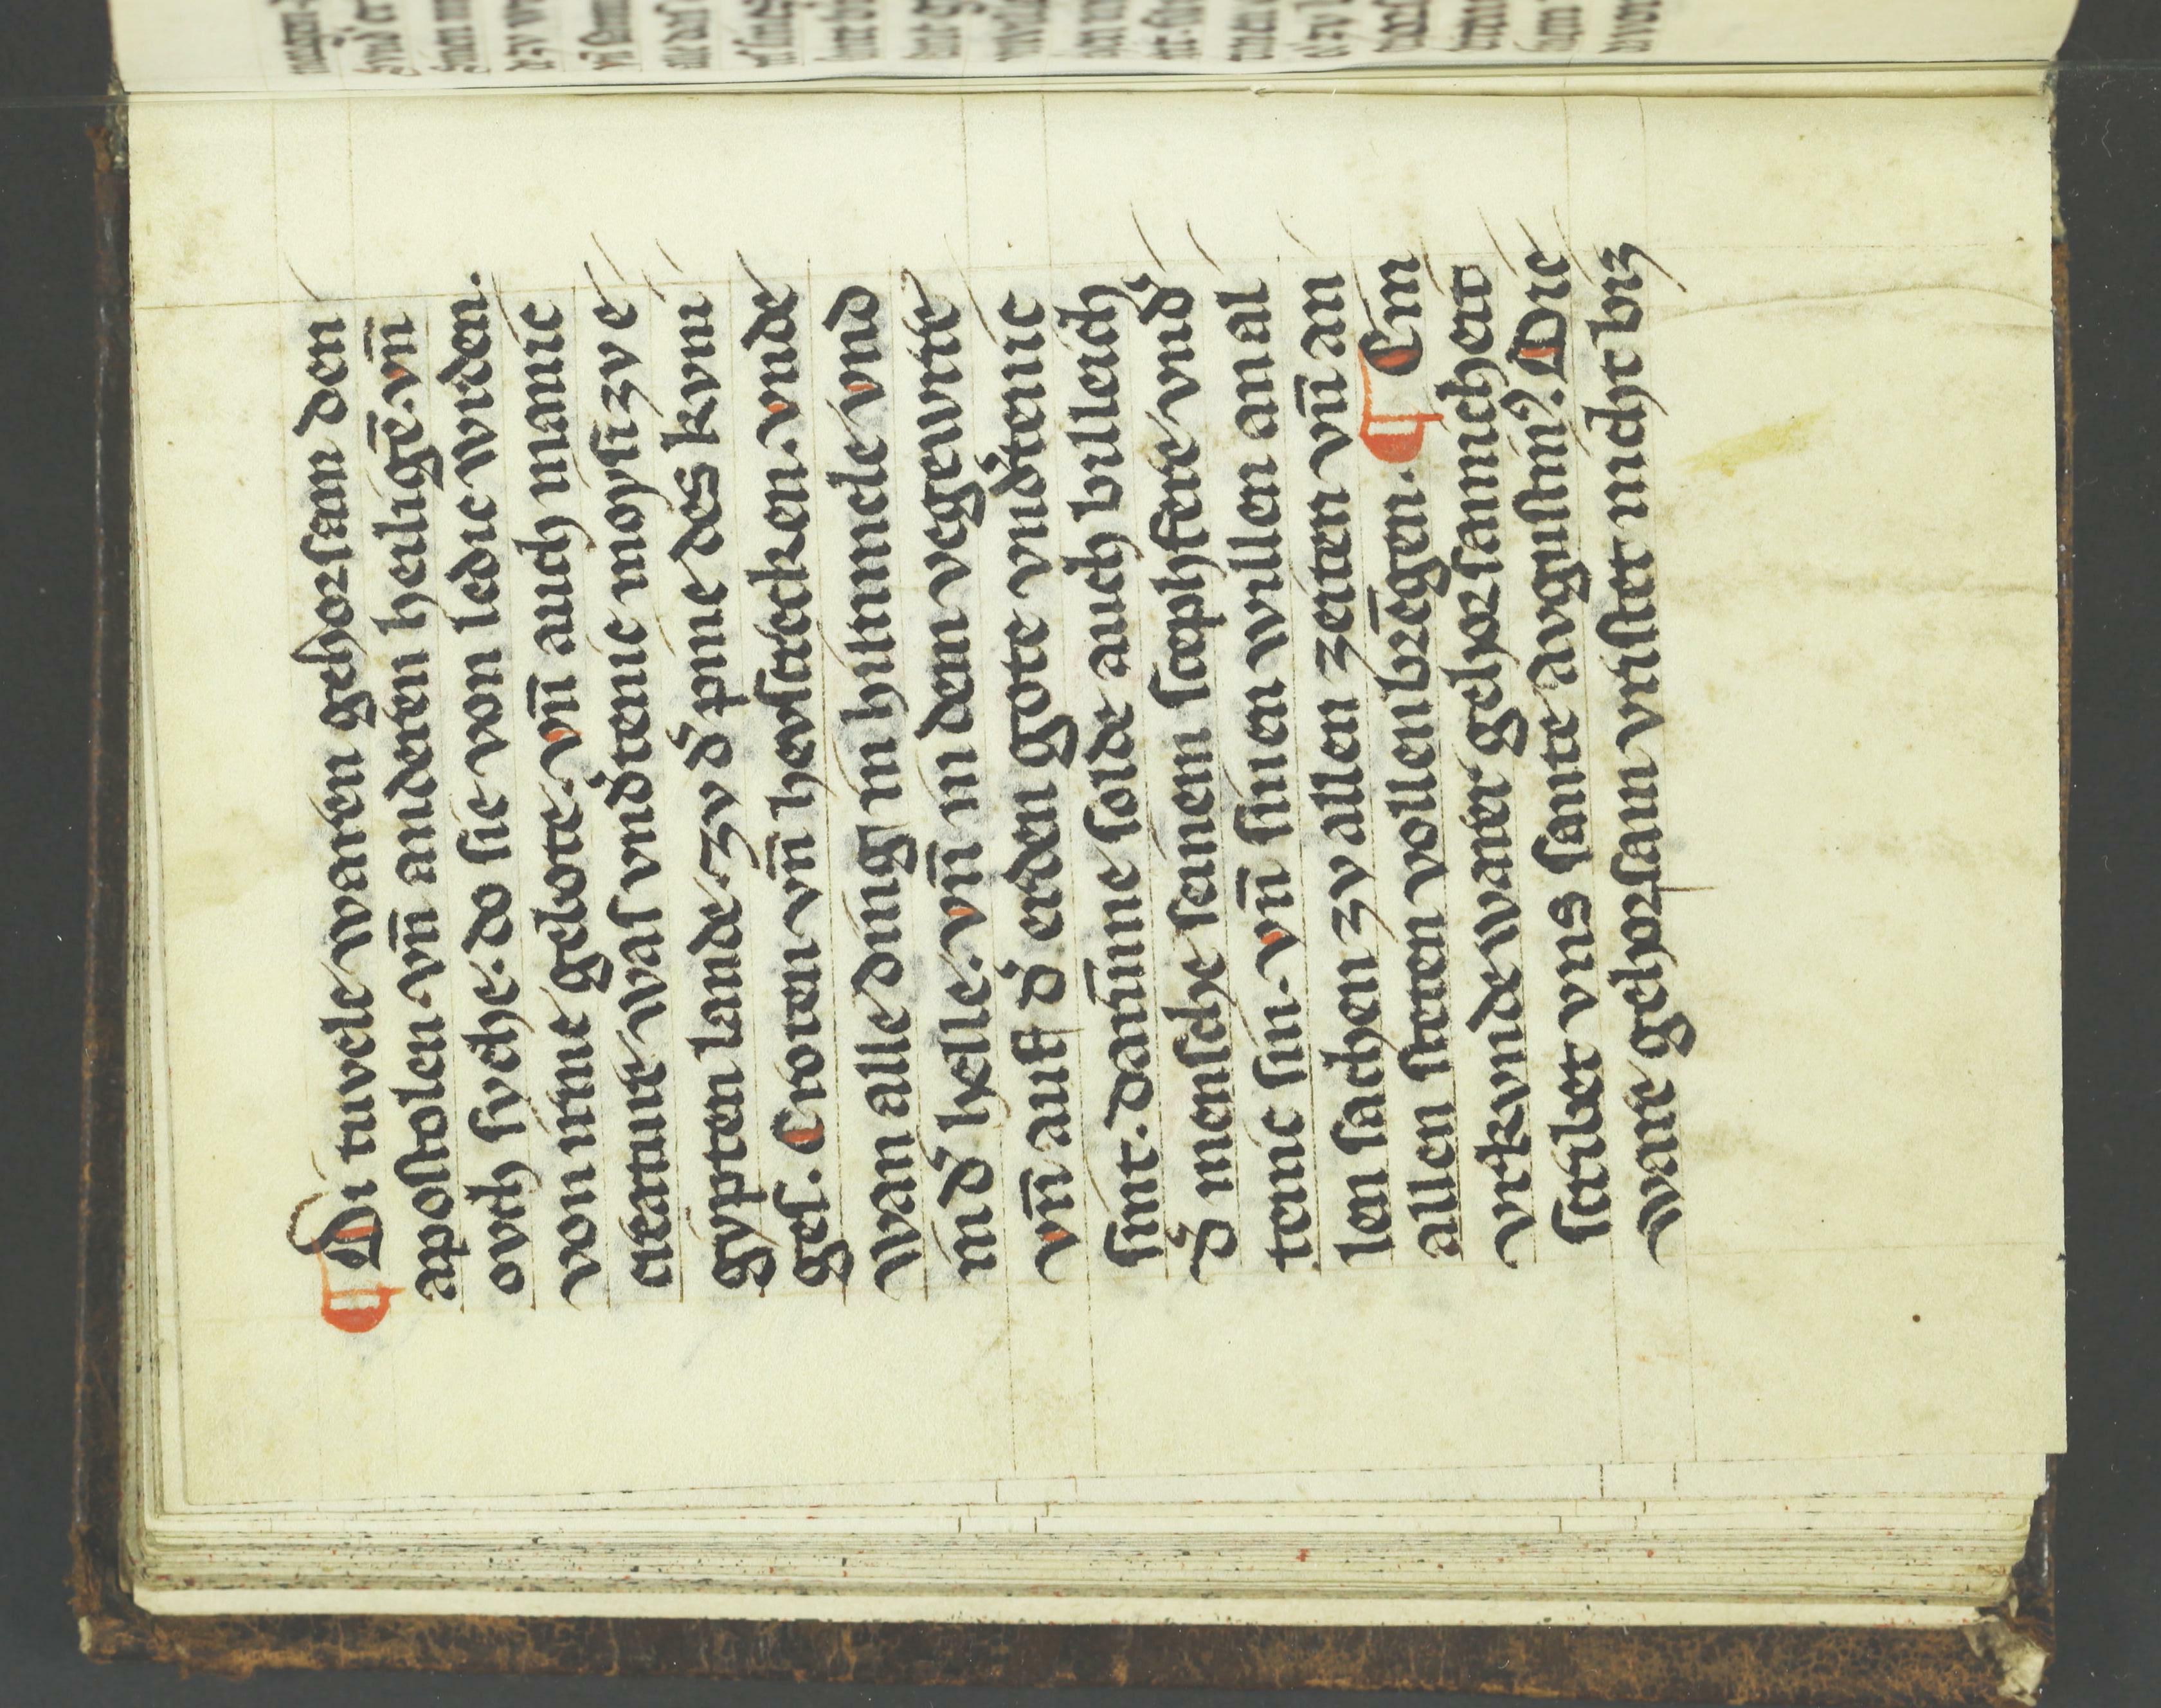 ¶ Di tuvele waren gehorsam den
apostolen. vn̄ anderen heiligē. vn̄
ovch syche. do sie von ledic wrden.
von irme gebote. vn̄ auch manic
creature was vnd͛tenic moysi zv e
gypten lande. zv d͛ pine des kvni
ges. Croten vn̄ hevstrecken. vnde
wan alle ding in himmele vnd
in d͛ helle. vn̄ in dem vegewire
vn̄ auff d͛ erden gote vnd͛tenic
sint. darūme solde auch billeich
d͛ mensche seinem scephfere vnd͛
tenic sin. vn̄ sinen willen an al
len sachen zv allen zeiten vn̄ an
allen steten vollenbrēgen. ¶ Ein
vrkvnde warer gehorsamicheit
scribet vns sante avgustin⁹. Die
ware gehorsam vristet nicht biz